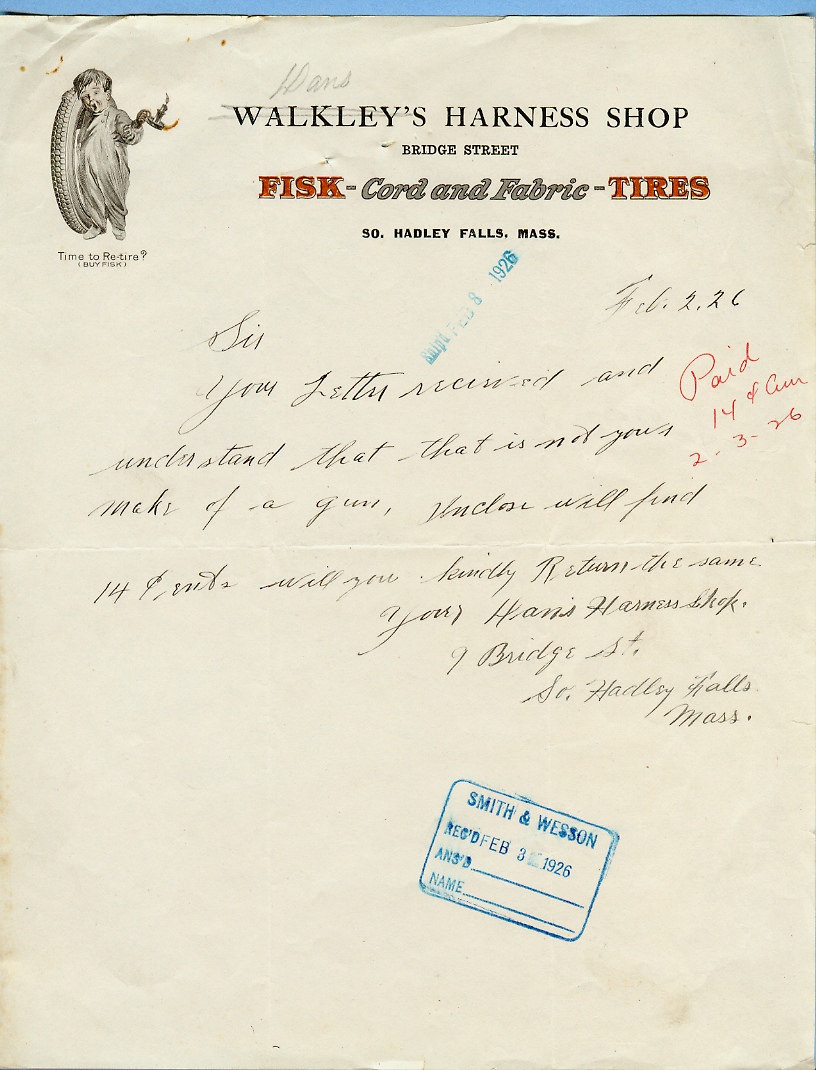 Hans
WALKLEY'S HARNESS SHOP
BRIDGE STREET
FISK - Cord and Fabric - TIRES
SO. HADLEY FALLS, MASS.
Time to Re-tire?
(BUY FISK)
Ship'd FEB 8 1926
Feb. 2, 26
Sir
Your Letter received and
understand that that is not yours
make of a gun, Inclose will find
14 ¢ents will you kindly Return the same
Yours Hans Harness Shop.
9 Bridge St.
So. Hadley Falls
Mass.
Paid
14 ¢
2-3-26
SMITH & WESSON
REC'D FEB 3 1926
ANS'D
NAME